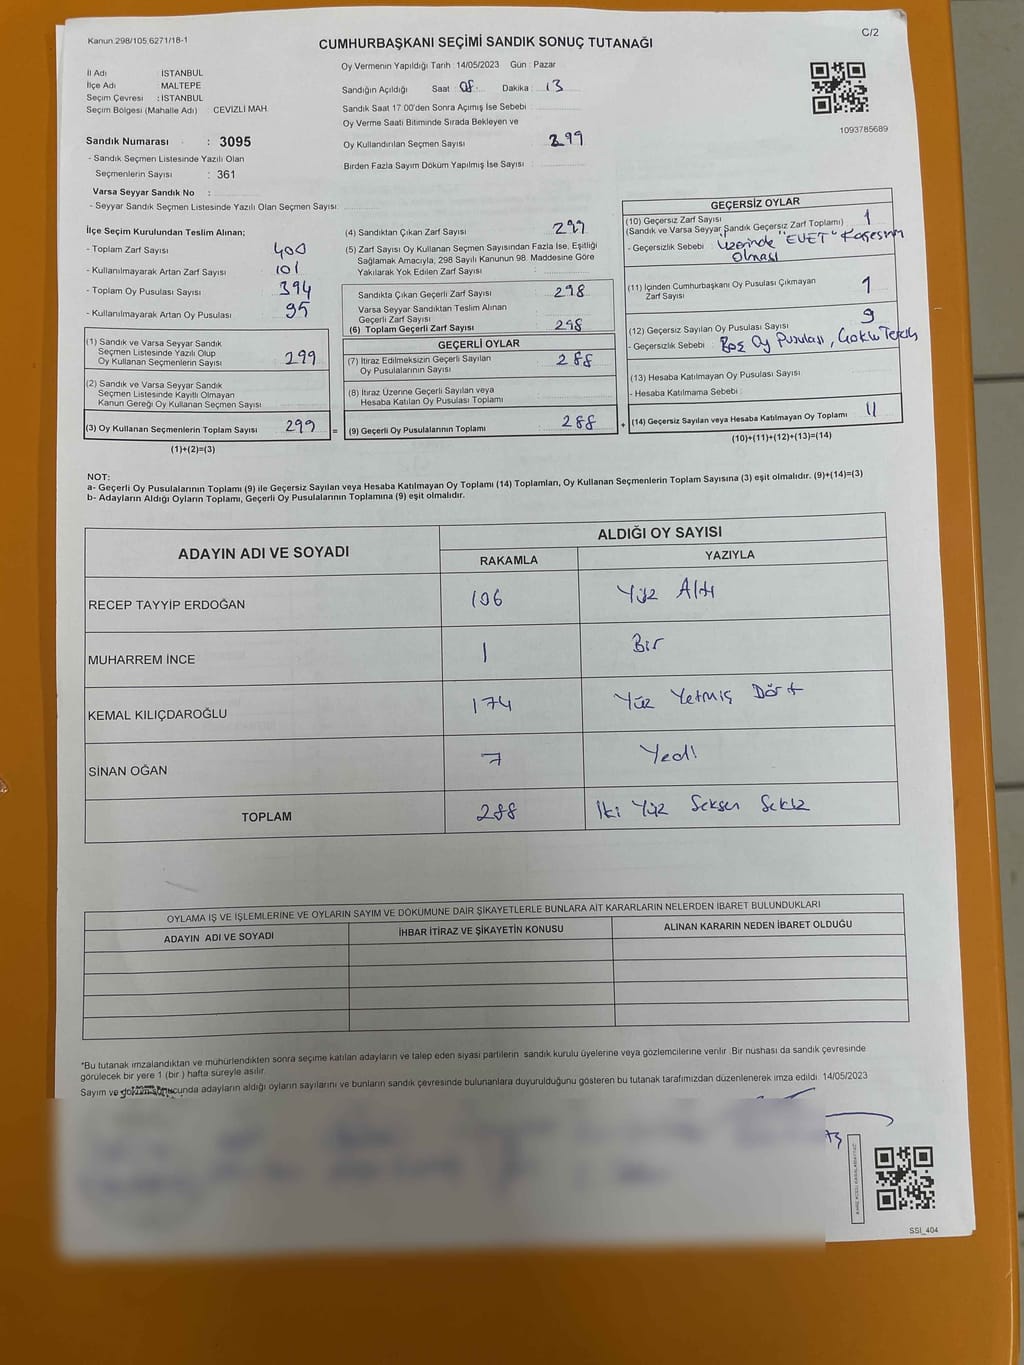 Kanun 298/105 6271/18-1
C/2
CUMHURBAŞKANI SEÇİMİ SANDIK SONUÇ TUTANAĞI
İl Adı : İSTANBUL
İlçe Adı : MALTEPE
Seçim Çevresi : İSTANBUL
Seçim Bölgesi (Mahalle Adı) : CEVİZLİ MAH.
Sandık Numarası : 3095
- Sandık Seçmen Listesinde Yazılı Olan
Seçmenlerin Sayısı : 361
Varsa Seyyar Sandık No :
- Seyyar Sandık Seçmen Listesinde Yazılı Olan Seçmen Sayısı
Oy Vermenin Yapıldığı Tarih : 14/05/2023 Gün : Pazar
Sandığın Açıldığı Saat 08 Dakika 13
Sandık Saat 17 00'den Sonra Açımış İse Sebebi
Oy Verme Saati Bitiminde Sırada Bekleyen ve
Oy Kullandırılan Seçmen Sayısı 299
Birden Fazla Sayım Döküm Yapılmış İse Sayısı
1093785689
İlçe Seçim Kurulundan Teslim Alınan;
- Toplam Zarf Sayısı 400
- Kullanılmayarak Artan Zarf Sayısı 101
- Toplam Oy Pusulası Sayısı 394
- Kullanılmayarak Artan Oy Pusulası 95
(1) Sandık ve Varsa Seyyar Sandık
Seçmen Listesinde Yazılı Olup
Oy Kullanan Seçmenlerin Sayısı 299
(2) Sandık ve Varsa Seyyar Sandık
Seçmen Listesinde Kayıtlı Olmayan
Kanun Gereği Oy Kullanan Seçmen Sayısı
(3) Oy Kullanan Seçmenlerin Toplam Sayısı 299
(1)+(2)=(3)
=
(4) Sandıktan Çıkan Zarf Sayısı 299
(5) Zarf Sayısı Oy Kullanan Seçmen Sayısından Fazla İse, Eşitliği
Sağlamak Amacıyla, 298 Sayılı Kanunun 98. Maddesine Göre
Yakılarak Yok Edilen Zarf Sayısı :
Sandıkta Çıkan Geçerli Zarf Sayısı 298
Varsa Seyyar Sandıktan Teslim Alınan
Geçerli Zarf Sayısı
(6) Toplam Geçerli Zarf Sayısı 298
GEÇERLİ OYLAR
(7) İtiraz Edilmeksizin Geçerli Sayılan
Oy Pusulalarının Sayısı 288
(8) İtiraz Üzerine Geçerli Sayılan veya
Hesaba Katılan Oy Pusulası Toplamı
(9) Geçerli Oy Pusulalarının Toplamı 288
+
GEÇERSİZ OYLAR
(10) Geçersiz Zarf Sayısı
(Sandık ve Varsa Seyyar Sandık Geçersiz Zarf Toplamı) 1
- Geçersizlik Sebebi : Üzerinde "EVET" Kaşesinin
Olması
(11) İçinden Cumhurbaşkanı Oy Pusulası Çıkmayan
Zarf Sayısı 1
(12) Geçersiz Sayılan Oy Pusulası Sayısı 9
- Geçersizlik Sebebi : Boş Oy Pusulası, Çoklu Tercih
(13) Hesaba Katılmayan Oy Pusulası Sayısı
- Hesaba Katılmama Sebebi
(14) Geçersiz Sayılan veya Hesaba Katılmayan Oy Toplamı 11
(10)+(11)+(12)+(13)=(14)
NOT:
a- Geçerli Oy Pusulalarının Toplamı (9) ile Geçersiz Sayılan veya Hesaba Katılmayan Oy Toplamı (14) Toplamları, Oy Kullanan Seçmenlerin Toplam Sayısına (3) eşit olmalıdır. (9)+(14)=(3)
b- Adayların Aldığı Oyların Toplamı, Geçerli Oy Pusulalarının Toplamına (9) eşit olmalıdır.
ADAYIN ADI VE SOYADI
ALDIĞI OY SAYISI
RAKAMLA YAZIYLA
RECEP TAYYİP ERDOĞAN 106 Yüz Altı
MUHARREM İNCE 1 Bir
KEMAL KILIÇDAROĞLU 174 Yüz Yetmiş Dört
SİNAN OĞAN 7 Yedi
TOPLAM 288 İki Yüz Seksen Sekiz
OYLAMA İŞ VE İŞLEMLERİNE VE OYLARIN SAYIM VE DÖKÜMÜNE DAİR ŞİKAYETLERLE BUNLARA AİT KARARLARIN NELERDEN İBARET BULUNDUKLARI
ADAYIN ADI VE SOYADI İHBAR İTİRAZ VE ŞİKAYETİN KONUSU ALINAN KARARIN NEDEN İBARET OLDUĞU
*Bu tutanak imzalandıktan ve mühürlendikten sonra seçime katılan adayların ve talep eden siyasi partilerin sandık kurulu üyelerine veya gözlemcilerine verilir. Bir nushası da sandık çevresinde
görülecek bir yere 1 (bir) hafta süreyle asılır.
Sayım ve dökümün sonucunda adayların aldığı oyların sayılarını ve bunların sandık çevresinde bulunanlara duyurulduğunu gösteren bu tutanak tarafımızdan düzenlenerek imza edildi. 14/05/2023
SSI_404